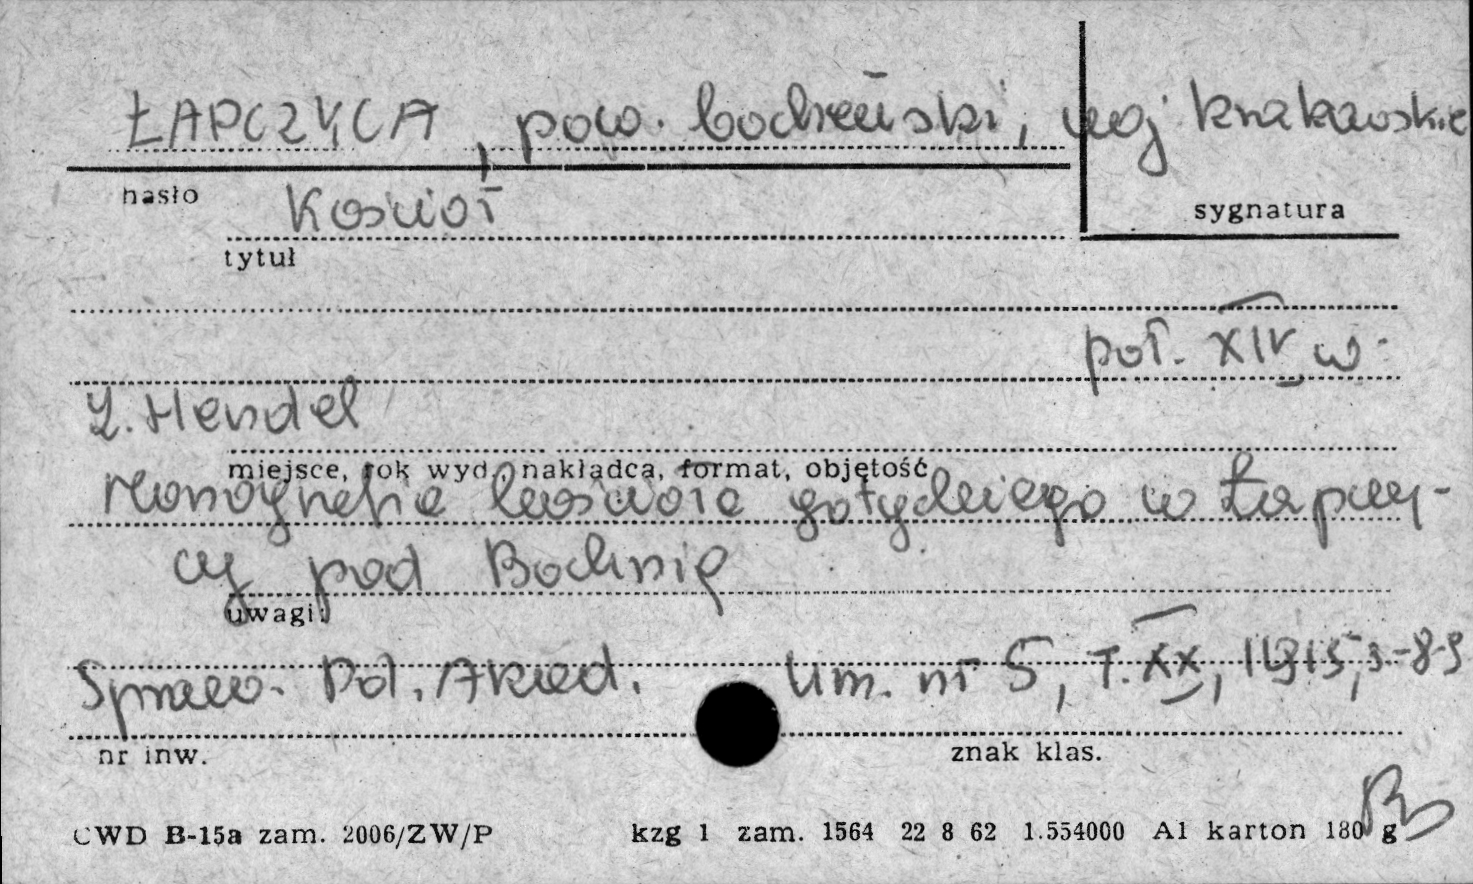 ŁAPCZYCA, pow. bocheński, woj krakowskie
hasło
Kościół
sygnatura
tytuł
poł. XIV w.
Z. Hendel
miejsce, rok wyd., nakładca, format, objętość
Monografia kościoła gotyckiego w Łapczy-
cy pod Bochnią
uwagi:
Spraw. Pol. Akad. Um. nr 5, T. XX, 1915, s.-8-9
nr inw.
znak klas.
CWD B-15a zam. 2006/ZW/P kzg 1 zam. 1564 22 8 62 1.554000 A1 karton 180 g